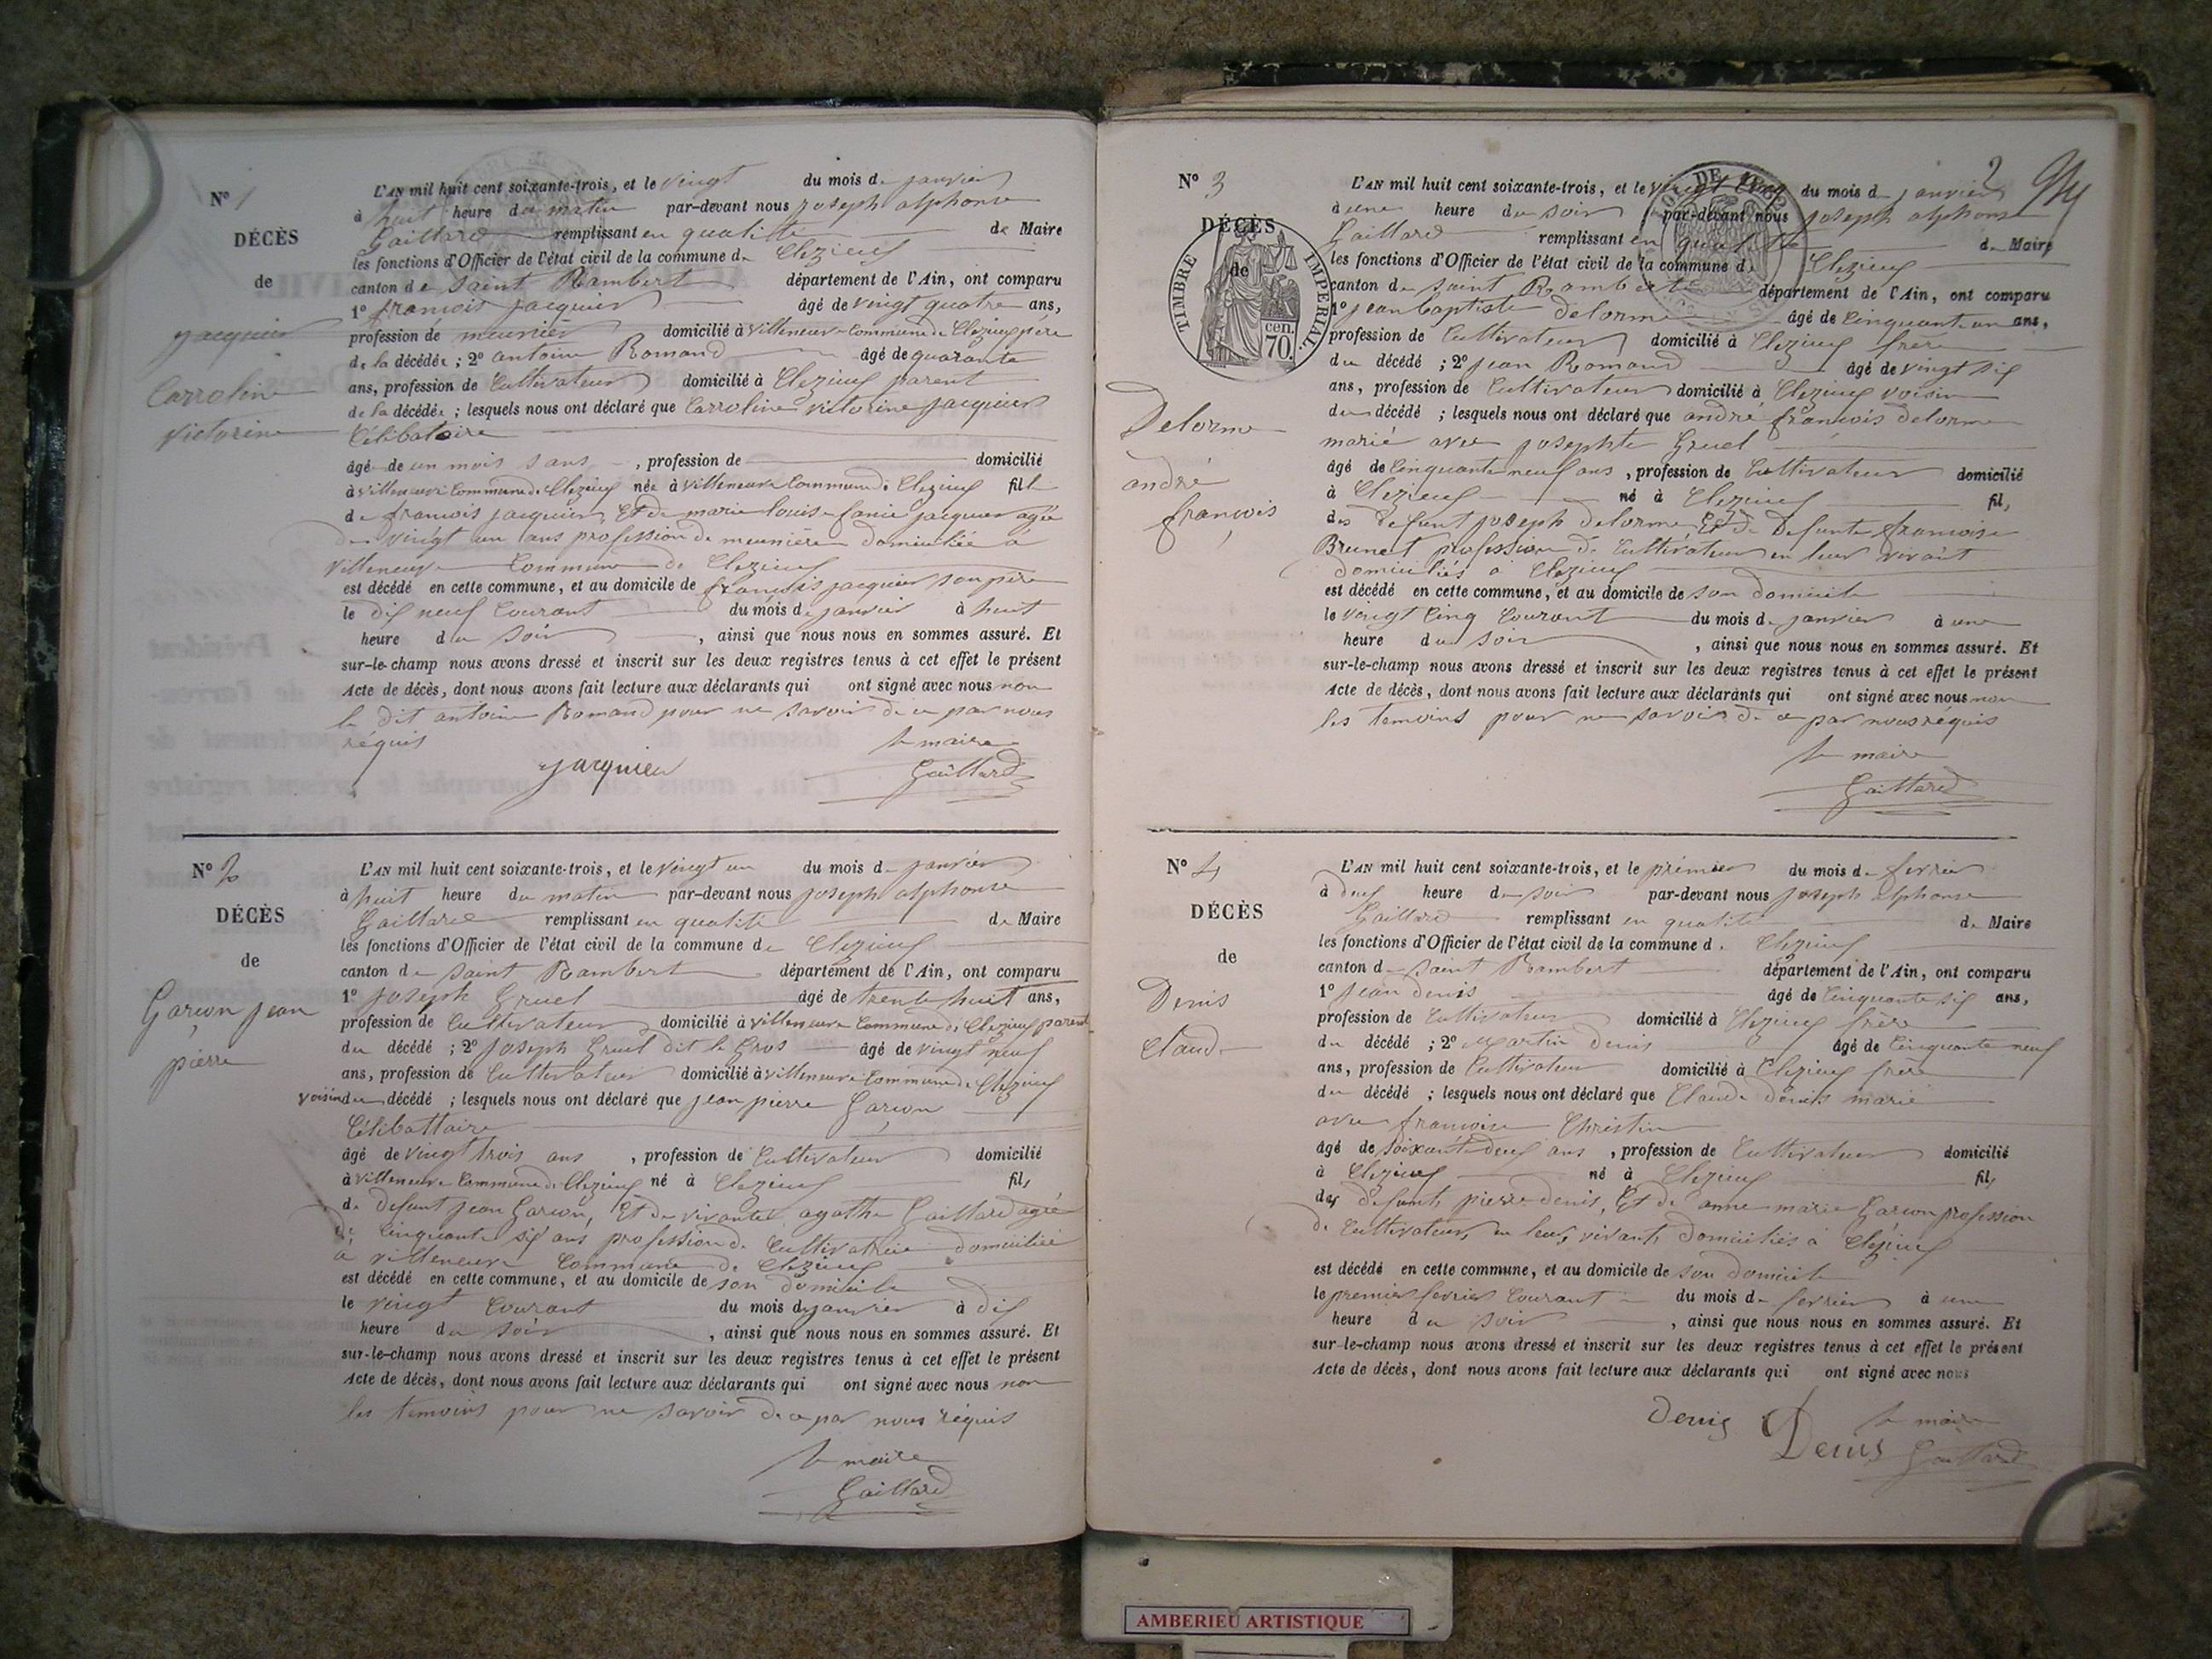 N° 1
DÉCÈS
de
jacquier
Carroline
victorine
L'AN mil huit cent soixante-trois, et le vingt du mois de janvier
à huit heure du matin par-devant nous joseph alphonse
Gaillard remplissant en qualité de Maire
les fonctions d'Officier de l'état civil de la commune de Clezieu
canton de Saint Rambert département de l'Ain, ont comparu
1° francois jacquier âgé de vingt quatre ans,
profession de meunier domicilié à villeneuve Commune de Clezieu père
de la décédée ; 2° antoine Romand âgé de quarante
ans, profession de Cultivateur domicilié à Clezieu parent
de la décédée ; lesquels nous ont déclaré que Carroline victorine jacquier
Célibataire
âgé de un mois , profession de domicilié
à villeneuve Commune de Clezieu née à villeneuve Commune de Clezieu fille
de francois jacquier, Et de marie louise jacquier agée
de vingt un ans profession de meunière domiciliée à
villeneuve Commune de Clezieu
est décédé en cette commune, et au domicile de francois jacquier son père
le dix neuf Courant du mois de janvier à huit
heure du soir , ainsi que nous nous en sommes assuré. Et
sur-le-champ nous avons dressé et inscrit sur les deux registres tenus à cet effet le présent
Acte de décès, dont nous avons fait lecture aux déclarants qui ont signé avec nous non
le dit antoine Romand pour ne savoir de ce par nous
réquis
le maire
jacquier Gaillard
N° 2
DÉCÈS
de
Garcon jean
pierre
L'AN mil huit cent soixante-trois, et le vingt un du mois de janvier
à huit heure du matin par-devant nous joseph alphonse
Gaillard remplissant en qualité de Maire
les fonctions d'Officier de l'état civil de la commune de Clezieu
canton de Saint Rambert département de l'Ain, ont comparu
1° joseph Gruel âgé de trente huit ans,
profession de Cultivateur domicilié à villeneuve Commune de Clezieu parent
du décédé ; 2° joseph Gruel dit le Gros âgé de vingt neuf
ans, profession de Cultivateur domicilié à villeneuve Commune de Clezieu
voisin du décédé ; lesquels nous ont déclaré que jean pierre Garçon
Célibattaire
âgé de vingt trois ans , profession de Cultivateur domicilié
à villeneuve Commune de Clezieu né à Clezieu fils
de defunt jean Garcon, Et de vivante agathe Gaillard agée
de Cinquante six ans profession de Cultivatrice domiciliée
à villeneuve Commune de Clezieu
est décédé en cette commune, et au domicile de son domicile
le vingt Courant du mois de janvier à dix
heure du soir , ainsi que nous nous en sommes assuré. Et
sur-le-champ nous avons dressé et inscrit sur les deux registres tenus à cet effet le présent
Acte de décès, dont nous avons fait lecture aux déclarants qui ont signé avec nous non
les temoins pour ne savoir de ce par nous réquis
le maire
Gaillard
2
N° 3
DÉCÈS
de
TIMBRE IMPERIAL
cen.
70.
Delorme
andré
francois
L'AN mil huit cent soixante-trois, et le vingt Cinq du mois de janvier
à une heure du soir par-devant nous joseph alphonse
Gaillard remplissant en qualité de Maire
les fonctions d'Officier de l'état civil de la commune de Clezieu
canton de Saint Rambert département de l'Ain, ont comparu
1° jean baptiste Delorme âgé de Cinquante un ans,
profession de Cultivateur domicilié à Clezieu frère
du décédé ; 2° jean Romand âgé de vingt six
ans, profession de Cultivateur domicilié à Clezieu voisin
du décédé ; lesquels nous ont déclaré que andré francois delorme
marié avec josephte Gruel
âgé de Cinquante neuf ans , profession de Cultivateur domicilié
à Clezieu né à Clezieu fils
des defunt joseph delorme Et de Defunte francoise
Brunet profession de Cultivateur en leur vivant
domiciliés à Clezieu
est décédé en cette commune, et au domicile de son domicile
le vingt Cinq Courant du mois de janvier à une
heure du soir , ainsi que nous nous en sommes assuré. Et
sur-le-champ nous avons dressé et inscrit sur les deux registres tenus à cet effet le présent
Acte de décès, dont nous avons fait lecture aux déclarants qui ont signé avec nous non
les temoins pour ne savoir de ce par nous réquis
le maire
Gaillard
N° 4
DÉCÈS
de
Denis
Claude
L'AN mil huit cent soixante-trois, et le prémier du mois de fevrier
à deux heure du soir par-devant nous joseph alphonse
Gaillard remplissant en qualité de Maire
les fonctions d'Officier de l'état civil de la commune d. Clezieu
canton de Saint Rambert département de l'Ain, ont comparu
1° jean denis âgé de Cinquante six ans,
profession de Cultivateur domicilié à Clezieu frère
du décédé ; 2° Martin denis âgé de Cinquante neuf
ans, profession de Cultivateur domicilié à Clezieu frère
du décédé ; lesquels nous ont déclaré que Claude denis marié
avec francoise Christin
âgé de soixante deux ans , profession de Cultivateur domicilié
à Clezieu né à Clezieu fils
des defunts pierre denis, Et de anne marie Garcon profession
de Cultivateurs en leurs vivants domiciliés à Clezieu
est décédé en cette commune, et au domicile de son domicile
le premier fevrier Courant du mois de fevrier à une
heure du soir , ainsi que nous nous en sommes assuré. Et
sur-le-champ nous avons dressé et inscrit sur les deux registres tenus à cet effet le présent
Acte de décès, dont nous avons fait lecture aux déclarants qui ont signé avec nous
Denis Denis le maire
Gaillard
AMBERIEU ARTISTIQUE